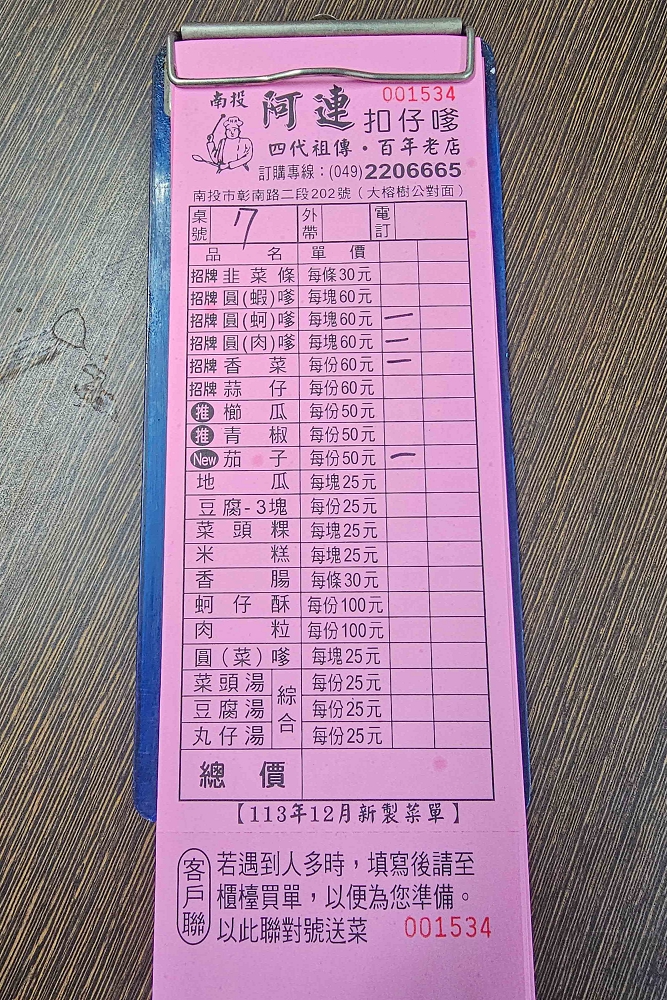 南投 阿連 扣仔嗲 001534
四代祖傳·百年老店
訂購專線：(049)2206665
南投市彰南路二段202號（大榕樹公對面）
桌號 7 外帶 電訂
品名 單價
招牌 韭菜條 每條30元
招牌 圓(蝦)嗲 每塊60元
招牌 圓(蚵)嗲 每塊60元 一
招牌 圓(肉)嗲 每塊60元 一
招牌 香菜 每份60元 一
招牌 蒜仔 每份60元
推 櫛瓜 每份50元
推 青椒 每份50元
New 茄子 每份50元 一
地瓜 每塊25元
豆腐-3塊 每份25元
菜頭粿 每塊25元
米糕 每塊25元
香腸 每條30元
蚵仔酥 每份100元
肉粒 每份100元
圓(菜)嗲 每塊25元
菜頭湯 綜合 每份25元
豆腐湯 每份25元
丸仔湯 每份25元
總價
【113年12月新製菜單】
客戶聯
若遇到人多時，填寫後請至
櫃檯買單，以便為您準備。
以此聯對號送菜 001534